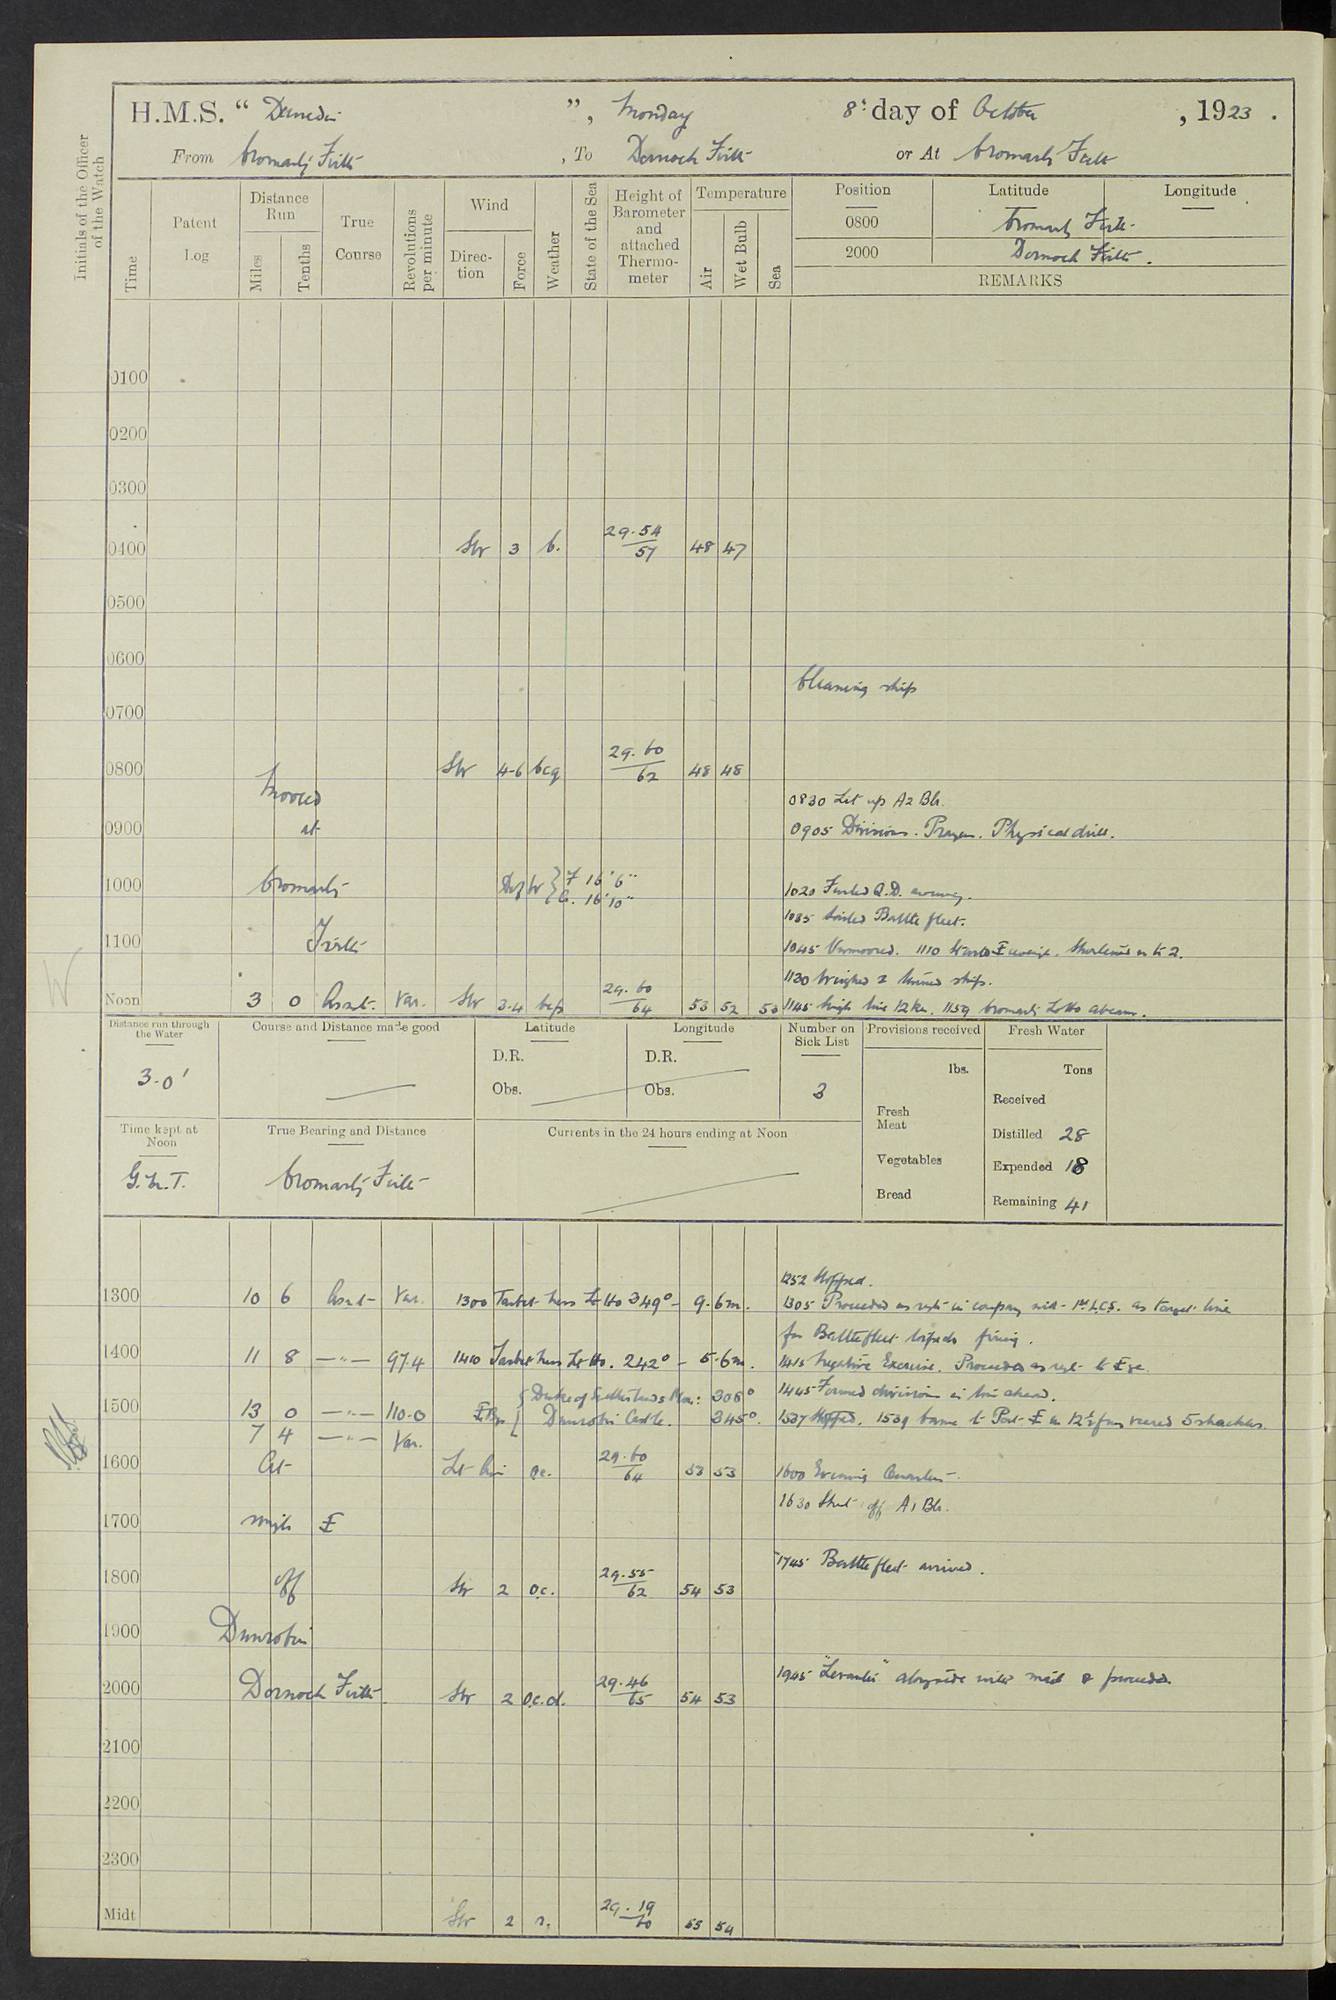 H.M.S. “ Dunedin ”, Monday 8th day of October, 1923.
From Cromarty Firth, To Dornoch Firth or At Cromarty Firth
Initials of the Officer of the Watch
Time
Patent Log
Distance Run
Miles
Tenths
True Course
Revolutions per minute
Wind
Direction
Force
Weather
State of the Sea
Height of Barometer and attached Thermometer
Temperature
Air
Wet Bulb
Sea
Position Latitude Longitude
0800 Cromarty Firth.
2000 Dornoch Firth.
REMARKS
0100
0200
0300
0400 SW 3 b. 29.54 57 48 47
0500
0600
Cleaning ship
0700
0800 SW 4-6 bcq 29.60 62 48 48
Moored
0830 Lit up A2 Blr.
0900 at
0905 Divisions. Prayers. Physical drill.
1000 Cromarty F 16' 6" A. 16' 10"
1020 Furled Q.D. awning.
1035 Sailed Battle fleet.
1100 Firth
1045 Unmoored. 1110 Shortened in to 2.
1130 Weighed & turned ship.
Noon 3 0 Var. SW 3.4 bcp 29.60 64 53 52 53
1145 12 kn. 1159 Cromarty Lt Ho abeam.
Distance run through the Water
3.0'
Course and Distance made good
Latitude
D.R.
Obs.
Longitude
D.R.
Obs.
Number on Sick List
3
Provisions received
lbs.
Fresh Meat
Vegetables
Bread
Fresh Water
Tons
Received
Distilled 28
Expended 18
Remaining 41
Time kept at Noon
G.M.T.
True Bearing and Distance
Cromarty Firth
Currents in the 24 hours ending at Noon
1252 Stopped.
1300 10 6 Var. 1300 Tarbet Ness Lt Ho 349° - 9.6m.
1305 Proceeded as reqte in company with 1st L.C.S. as target line
for Battle fleet torpedo firing.
1400 11 8 —"— 97.4 1410 Tarbet Ness Lt Ho. 242° - 5.6m.
1415 Negative Exercise. Proceeded as reqte to
1445 Formed divisions in line ahead.
1500 13 0 —"— 110.0 Duke of Sutherlands Mon: 308°
Dunrobin Castle. 345°.
1537 Stopped. 1539 Came to Port in 12½ fms veered 5 shackles.
7 4 —"— Var.
1600 At Lt Air oc. 29.60 64 53 53
1600 Evening Quarters.
1630 Shut off A1 Blr.
1700 single
1745 Battle fleet arrived.
1800 off SW 2 o.c. 29.55 62 54 53
1900 Dunrobin
1945 alongside with mail & proceeded.
2000 Dornoch Firth. SW 2 o.c.d. 29.46 65 54 53
2100
2200
2300
Midt SW 2 r. 29.19 60 55 54